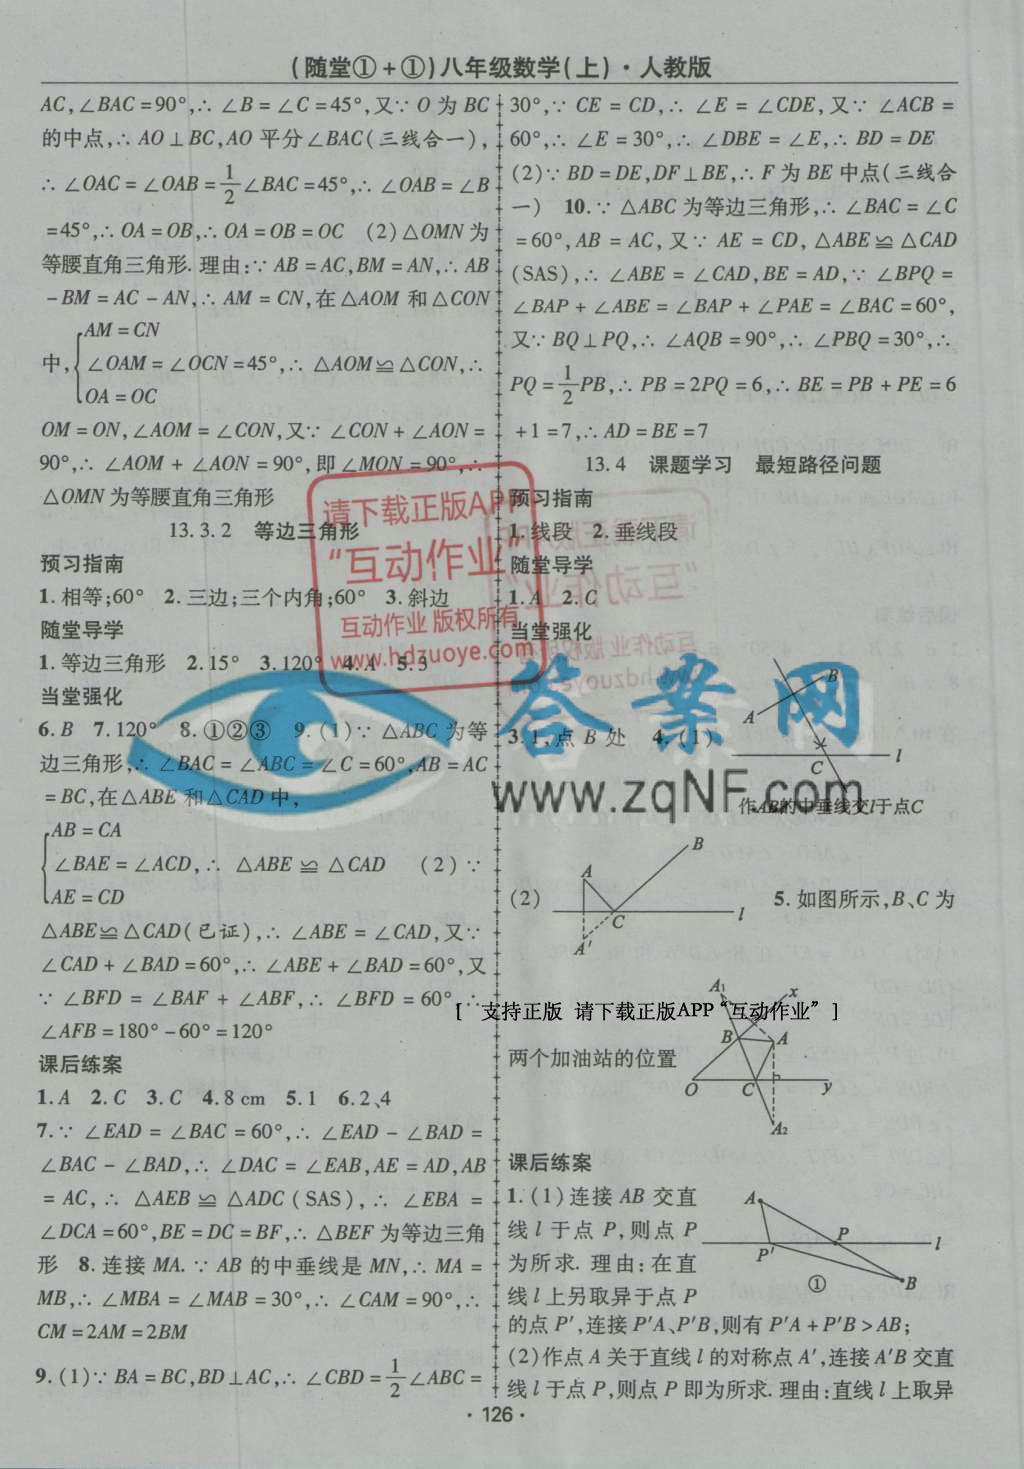 (随堂①+①)八年级数学(上)·人教版
AC,∠BAC=90°,∴ ∠B=∠C=45°,又∵ O 为 BC
的中点,∴ AO⊥BC,AO 平分∠BAC(三线合一),
∴ ∠OAC=∠OAB=1/2∠BAC=45°,∴ ∠OAB=∠B
=45°,∴ OA=OB,∴ OA=OB=OC (2)△OMN 为
等腰直角三角形.理由:∵ AB=AC,BM=AN,∴ AB
-BM=AC-AN,∴ AM=CN,在△AOM 和△CON
中,{AM=CN
∠OAM=∠OCN=45°,∴ △AOM≌△CON,∴
OA=OC
OM=ON,∠AOM=∠CON,又∵ ∠CON+∠AON=
90°,∴ ∠AOM+∠AON=90°,即∠MON=90°,∴
△OMN 为等腰直角三角形
13.3.2 等边三角形
预习指南
1.相等;60° 2.三边;三个内角;60° 3.斜边
随堂导学
1.等边三角形 2.15° 3.120° 4.A 5.3
当堂强化
6.B 7.120° 8.①②③ 9.(1)∵ △ABC 为等
边三角形,∴ ∠BAC=∠ABC=∠C=60°,AB=AC
=BC,在△ABE 和△CAD 中,
{AB=CA
∠BAE=∠ACD,∴ △ABE≌△CAD (2)∵
AE=CD
△ABE≌△CAD(已证),∴ ∠ABE=∠CAD,又∵
∠CAD+∠BAD=60°,∴ ∠ABE+∠BAD=60°,又
∵ ∠BFD=∠BAF+∠ABF,∴ ∠BFD=60°,∴
∠AFB=180°-60°=120°
课后练案
1.A 2.C 3.C 4.8 cm 5.1 6.2、4
7.∵ ∠EAD=∠BAC=60°,∴ ∠EAD-∠BAD=
∠BAC-∠BAD,∴ ∠DAC=∠EAB,AE=AD,AB
=AC,∴ △AEB≌△ADC(SAS),∴ ∠EBA=
∠DCA=60°,BE=DC=BF,∴ △BEF 为等边三角
形 8.连接 MA.∵ AB 的中垂线是 MN,∴ MA=
MB,∴ ∠MBA=∠MAB=30°,∴ ∠CAM=90°,∴
CM=2AM=2BM
9.(1)∵ BA=BC,BD⊥AC,∴ ∠CBD=1/2∠ABC=
30°,∵ CE=CD,∴ ∠E=∠CDE,又∵ ∠ACB=
60°,∴ ∠E=30°,∴ ∠DBE=∠E,∴ BD=DE
(2)∵ BD=DE,DF⊥BE,∴ F 为 BE 中点(三线合
一) 10.∵ △ABC 为等边三角形,∴ ∠BAC=∠C
=60°,AB=AC,又∵ AE=CD,△ABE≌△CAD
(SAS),∴ ∠ABE=∠CAD,BE=AD,∵ ∠BPQ=
∠BAP+∠ABE=∠BAP+∠PAE=∠BAC=60°,
又∵ BQ⊥PQ,∴ ∠AQB=90°,∴ ∠PBQ=30°,∴
PQ=1/2PB,∴ PB=2PQ=6,∴ BE=PB+PE=6
+1=7,∴ AD=BE=7
13.4 课题学习 最短路径问题
预习指南
1.线段 2.垂线段
随堂导学
1.A 2.C
当堂强化
3.1,点 B 处 4.(1)
A B C l
作AB的中垂线交l于点C
(2)
A B C A′ l
5.如图所示,B、C 为
两个加油站的位置
A₁ x B A O C y A₂
课后练案
1.(1)连接 AB 交直
线 l 于点 P,则点 P
为所求.理由:在直
线 l 上另取异于点 P
A P P′ B l ①
的点 P′,连接 P′A、P′B,则有 P′A+P′B>AB;
(2)作点 A 关于直线 l 的对称点 A′,连接 A′B 交直
线 l 于点 P,则点 P 即为所求.理由:直线 l 上取异
·126·
请下载正版APP
“互动作业”
互动作业 版权所有
www.hdzuoye.com
答案网
www.zqNF.com
[ 支持正版 请下载正版APP“互动作业” ]